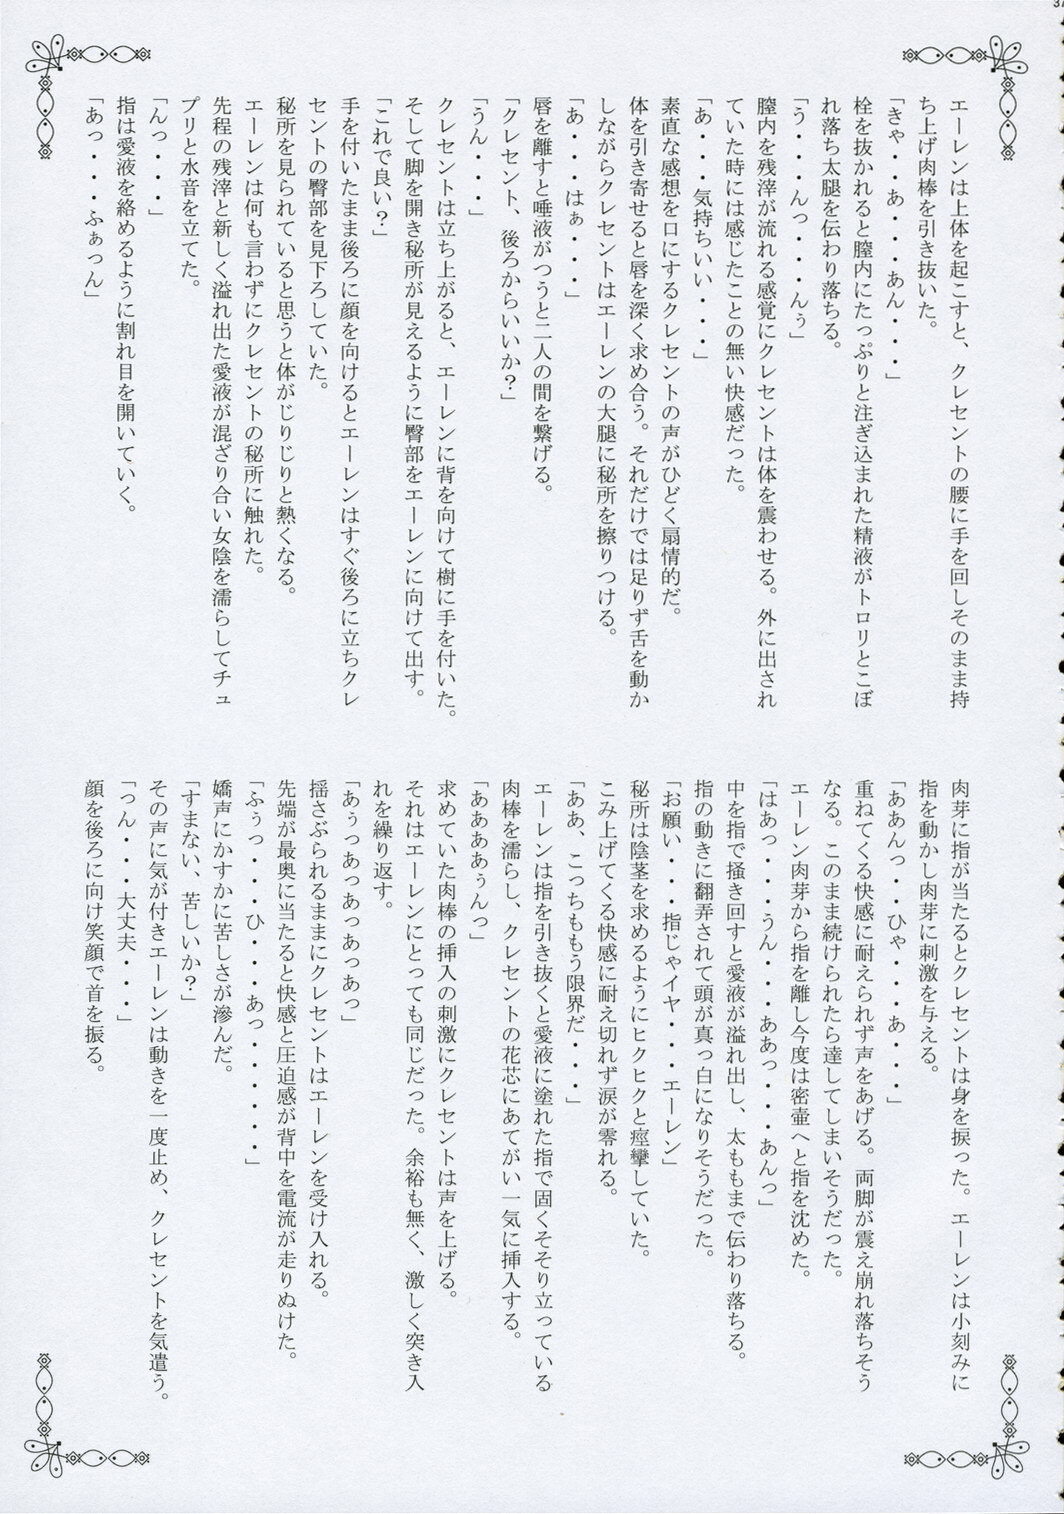 エーレンは上体を起こすと、クレセントの腰に手を回しそのまま持
ち上げ肉棒を引き抜いた。
「きゃ・・あ・・・あん・・・」
栓を抜かれると膣内にたっぷりと注ぎ込まれた精液がトロリとこぼ
れ落ち太腿を伝わり落ちる。
「う・・・んっ・・・んぅ」
膣内を残滓が流れる感覚にクレセントは体を震わせる。外に出され
ていた時には感じたことの無い快感だった。
「あ・・・気持ちいい・・・」
素直な感想を口にするクレセントの声がひどく扇情的だ。
体を引き寄せると唇を深く求め合う。それだけでは足りず舌を動か
しながらクレセントはエーレンの大腿に秘所を擦りつける。
「あ・・・はぁ・・・」
唇を離すと唾液がつうと二人の間を繋げる。
「クレセント、後ろからいいか？」
「うん・・・」
クレセントは立ち上がると、エーレンに背を向けて樹に手を付いた。
そして脚を開き秘所が見えるように臀部をエーレンに向けて出す。
「これで良い？」
手を付いたまま後ろに顔を向けるとエーレンはすぐ後ろに立ちクレ
セントの臀部を見下ろしていた。
秘所を見られていると思うと体がじりじりと熱くなる。
エーレンは何も言わずにクレセントの秘所に触れた。
先程の残滓と新しく溢れ出た愛液が混ざり合い女陰を濡らしてチュ
プリと水音を立てた。
「んっ・・・」
指は愛液を絡めるように割れ目を開いていく。
「あっ・・・ふぁっん」
肉芽に指が当たるとクレセントは身を捩った。エーレンは小刻みに
指を動かし肉芽に刺激を与える。
「ああんっ・・・ひゃ・・・あ・・・」
重ねてくる快感に耐えられず声をあげる。両脚が震え崩れ落ちそう
なる。このまま続けられたら達してしまいそうだった。
エーレン肉芽から指を離し今度は密壷へと指を沈めた。
「はあっ・・・うん・・・ああっ・・・あんっ」
中を指で掻き回すと愛液が溢れ出し、太ももまで伝わり落ちる。
指の動きに翻弄されて頭が真っ白になりそうだった。
「お願い・・・指じゃイヤ・・・エーレン」
秘所は陰茎を求めるようにヒクヒクと痙攣していた。
こみ上げてくる快感に耐え切れず涙が零れる。
「ああ、こっちももう限界だ・・・」
エーレンは指を引き抜くと愛液に塗れた指で固くそそり立っている
肉棒を濡らし、クレセントの花芯にあてがい一気に挿入する。
「ああああぅんっ」
求めていた肉棒の挿入の刺激にクレセントは声を上げる。
それはエーレンにとっても同じだった。余裕も無く、激しく突き入
れを繰り返す。
「あぅっあっあっあっあっ」
揺さぶられるままにクレセントはエーレンを受け入れる。
先端が最奥に当たると快感と圧迫感が背中を電流が走りぬけた。
「ふぅっ・・・ひ・・・あっ・・・・・」
嬌声にかすかに苦しさが滲んだ。
「すまない、苦しいか？」
その声に気が付きエーレンは動きを一度止め、クレセントを気遣う。
「っん・・・大丈夫・・・」
顔を後ろに向け笑顔で首を振る。